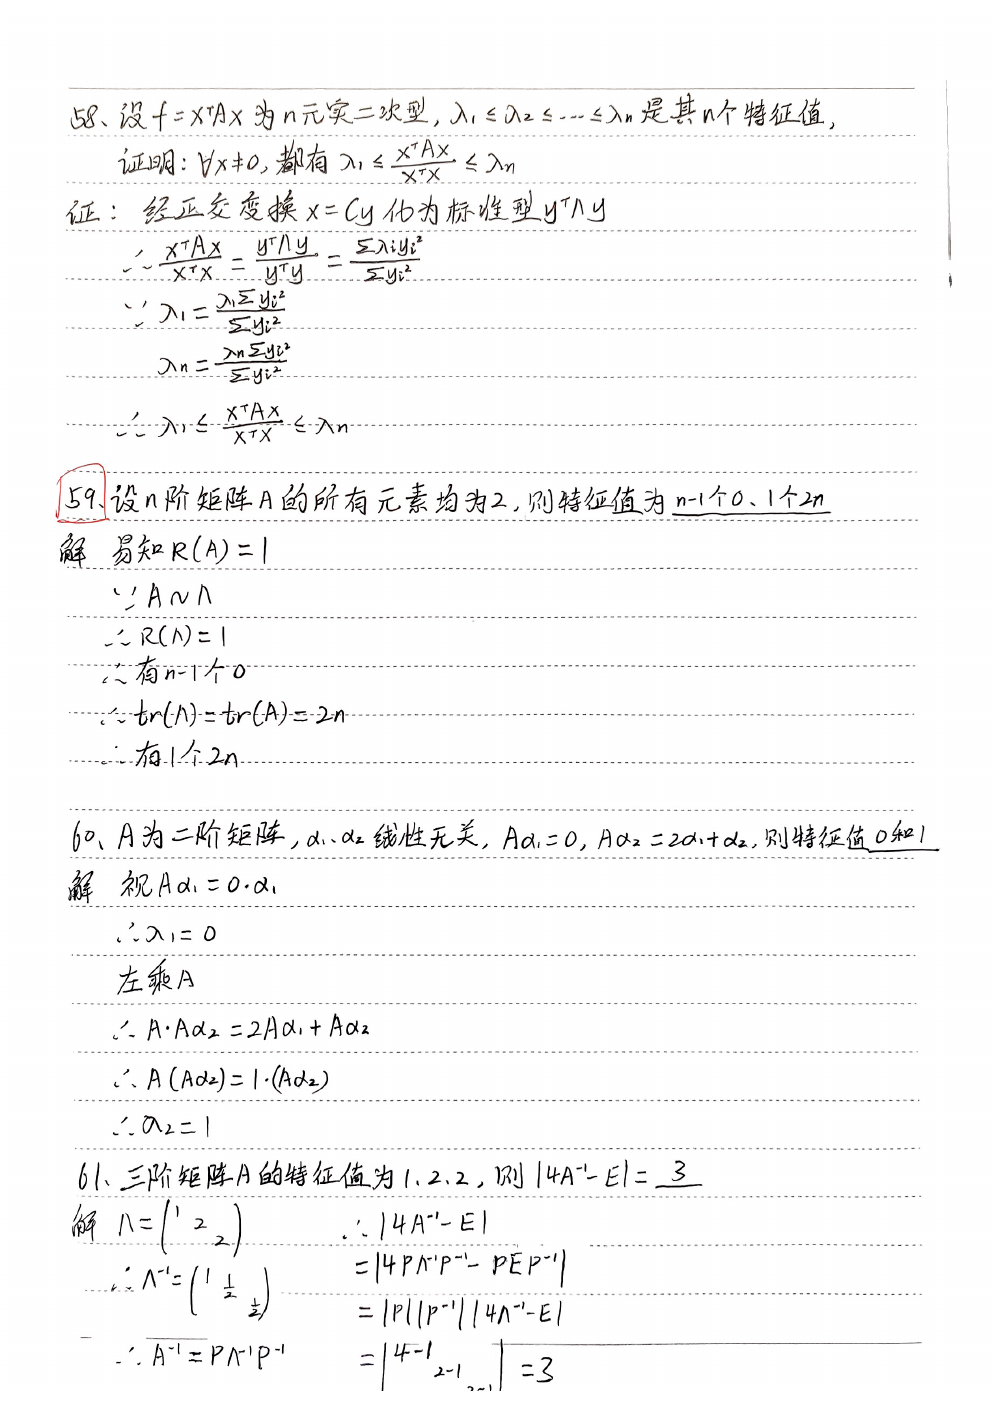 58、设f=xᵀAx为n元实二次型,λ₁≤λ₂≤…≤λn是其n个特征值,
证明:∀x≠0,都有λ₁≤xᵀAx/xᵀx≤λn
证:经正交变换x=Cy化为标准型yᵀΛy
∴xᵀAx/xᵀx=yᵀΛy/yᵀy=Σλiyi²/Σyi²
∵λ₁=λ₁Σyi²/Σyi²
λn=λnΣyi²/Σyi²
∴λ₁≤xᵀAx/xᵀx≤λn
59、设n阶矩阵A的所有元素均为2,则特征值为n-1个0、1个2n
解 易知R(A)=1
∵A~Λ
∴R(Λ)=1
∴有n-1个0
∴tr(Λ)=tr(A)=2n
∴有1个2n
60、A为二阶矩阵,α₁、α₂线性无关,Aα₁=0,Aα₂=2α₁+α₂,则特征值0和1
解 视Aα₁=0·α₁
∴λ₁=0
左乘A
∴A·Aα₂=2Aα₁+Aα₂
∴A(Aα₂)=1·(Aα₂)
∴λ₂=1
61、三阶矩阵A的特征值为1.2.2,则|4A⁻¹-E|=3
解 Λ=(1 2 2)
∴Λ⁻¹=(1 1/2 1/2)
∴A⁻¹=PΛ⁻¹P⁻¹
∴|4A⁻¹-E|
=|4PΛ⁻¹P⁻¹-PEP⁻¹|
=|P||P⁻¹||4Λ⁻¹-E|
=|4-1 2-1 2-1|=3